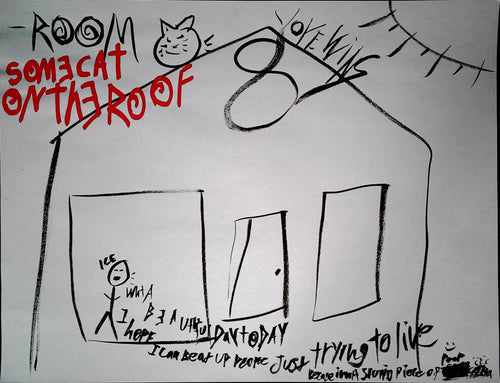 -ROOM
SOMECAT
ONTHEROOF
8
LOVEWINS
ICE
WhtA
BEAUtifulDAYtoDAY
I HOPE
I CAN BEAT UP PEOPLE JUST trying to live
Because im A Stupid Piece OF
POOP